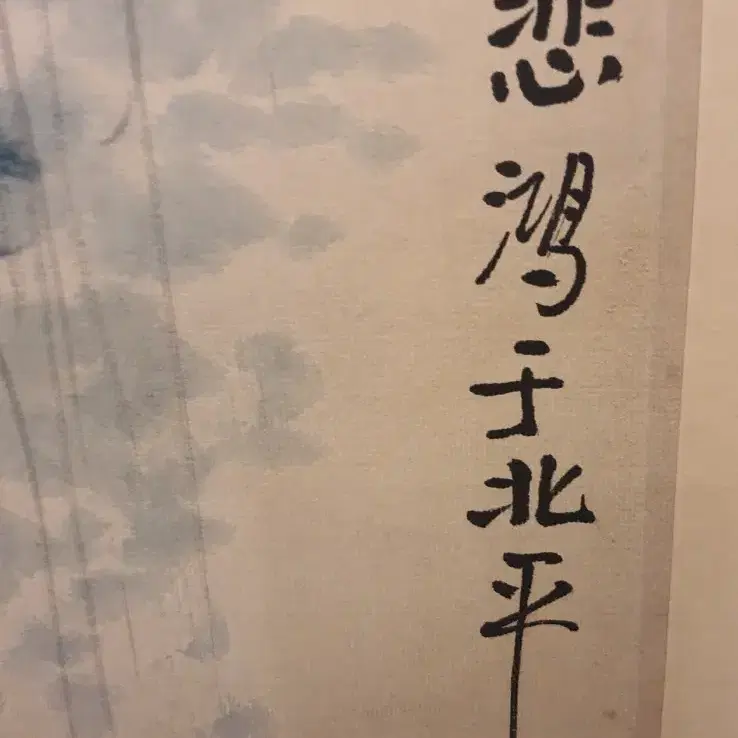 悲鴻于北平